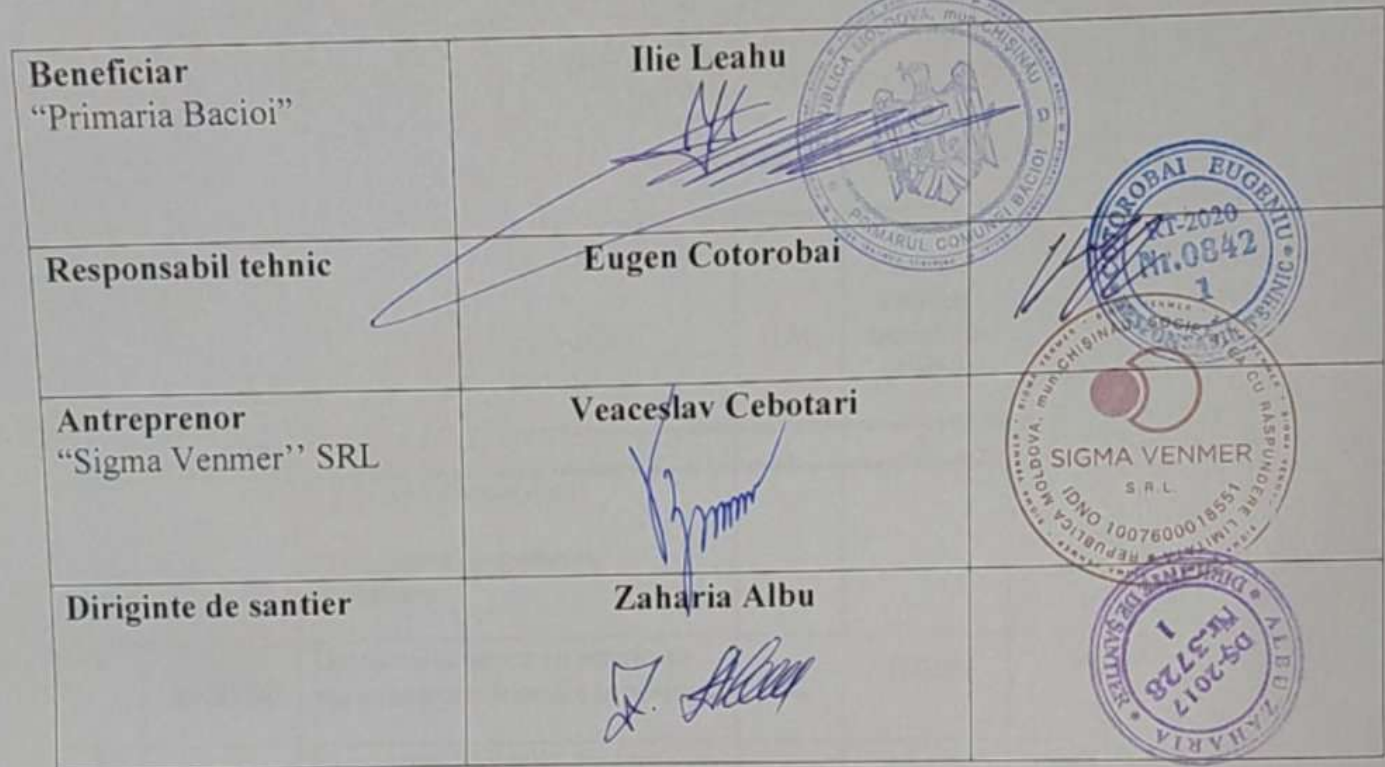 Beneficiar
“Primaria Bacioi”
Ilie Leahu
REPUBLICA MOLDOVA, mun. CHIȘINĂU
PRIMARUL COMUNEI BĂCIOI
Responsabil tehnic
Eugen Cotorobai
COTOROBAI EUGENIU
RT-2020
Nr.0842
1
RESPONSABIL TEHNIC
Antreprenor
“Sigma Venmer’’ SRL
Veaceslav Cebotari
REPUBLICA MOLDOVA, mun. CHIȘINĂU
SOCIETATEA CU RĂSPUNDERE LIMITATĂ
SIGMA VENMER
S.R.L.
IDNO 1007600018551
Diriginte de santier
Zaharia Albu
Z. Albu
DIRIGINTE DE ȘANTIER
ALBU ZAHARIA
DȘ-2017
Nr.3728
1